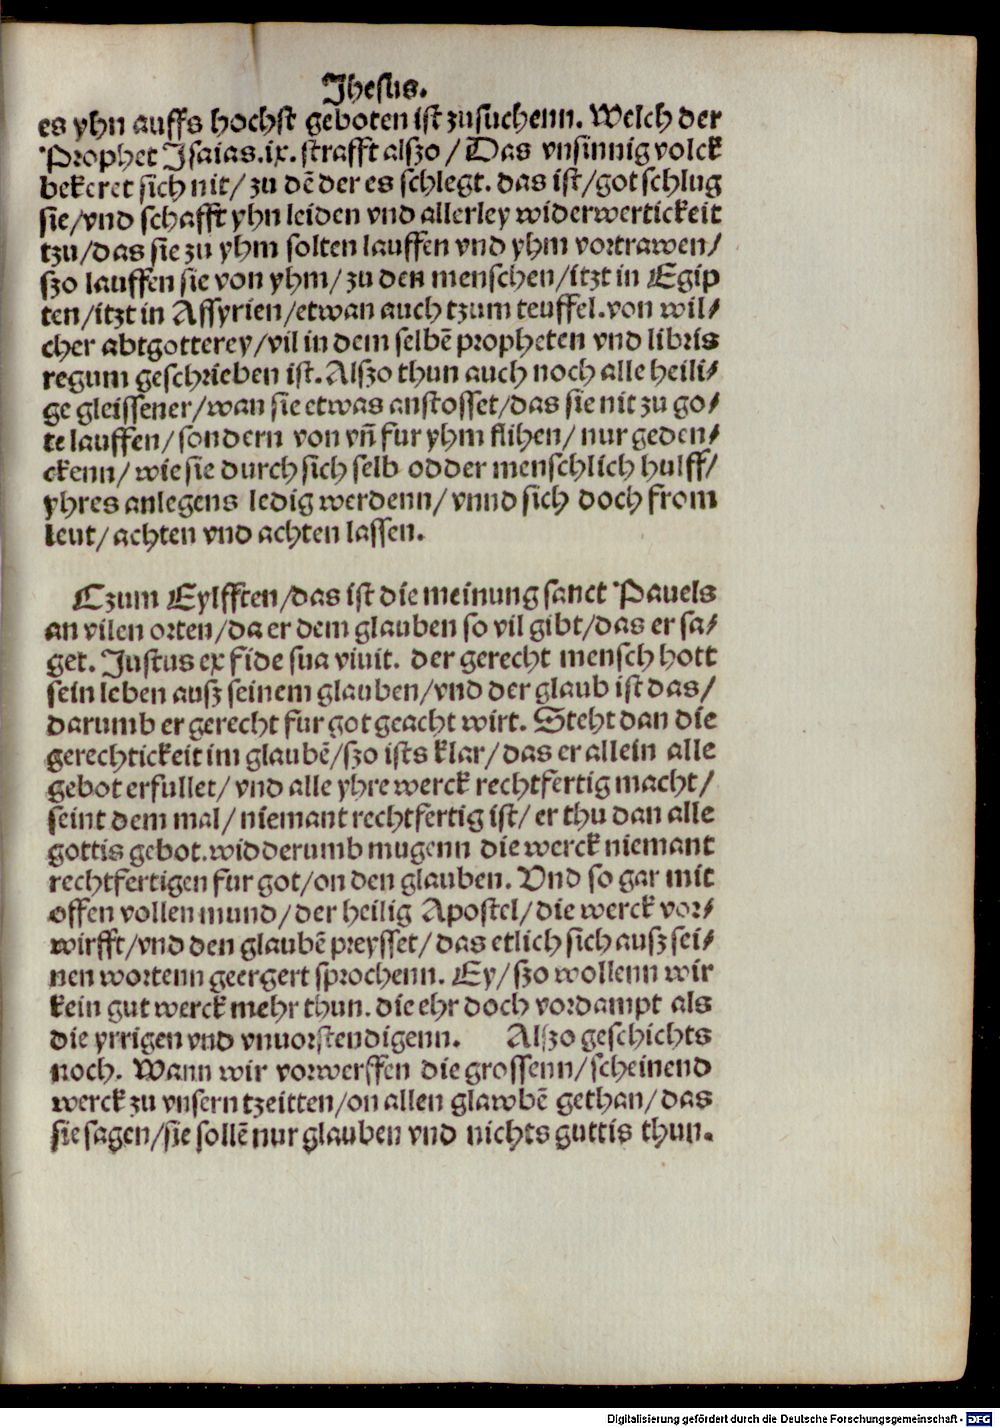 Jhesus.
es yhn auffs hochst geboten ist zusuchenn. Welch der
Prophet Jsaias.ix. strafft alszo / Das vnsinnig volck
bekeret sich nit/ zu dē der es schlegt. das ist/got schlug
sie/vnd schafft yhn leiden vnd allerley widerwertickeit
tzu/das sie zu yhm solten lauffen vnd yhm vortrawen/
szo lauffen sie von yhm/ zu den menschen/itzt in Egip
ten/itzt in Assyrien/etwan auch tzum teuffel.von wil⸗
cher abtgotterey/vil in dem selbē propheten vnd libris
regum geschrieben ist. Alszo thun auch noch alle heili⸗
ge gleissener/wan sie etwas anstosset/das sie nit zu go⸗
te lauffen/sondern von vñ fur yhm flihen/ nur geden⸗
ckenn/ wie sie durch sich selb odder menschlich hulff/
yhres anlegens ledig werdenn/ vnnd sich doch from
leut/ achten vnd achten lassen.
Czum Eylfften/das ist die meinung sanct Pauels
an vilen orten/da er dem glauben so vil gibt/das er sa⸗
get. Justus ex fide sua viuit. der gerecht mensch hott
sein leben ausz seinem glauben/vnd der glaub ist das/
darumb er gerecht fur got geacht wirt. Steht dan die
gerechtickeit im glaubē/szo ists klar/das er allein alle
gebot erfullet/ vnd alle yhre werck rechtfertig macht/
seint dem mal/ niemant rechtfertig ist/ er thu dan alle
gottis gebot.widderumb mugenn die werck niemant
rechtfertigen fur got/on den glauben. Vnd so gar mit
offen vollen mund/der heilig Apostel/die werck vor⸗
wirfft/vnd den glaubē preysset/das etlich sich ausz sei⸗
nen wortenn geergert sprochenn. Ey/szo wollenn wir
kein gut werck mehr thun. die ehr doch vordampt als
die yrrigen vnd vnuorstendigenn. Alszo geschichts
noch. Wann wir vorwerffen die grossenn/scheinend
werck zu vnsern tzeitten/on allen glawbē gethan/das
sie sagen/sie sollē nur glauben vnd nichts guttis thun.
Digitalisierung gefördert durch die Deutsche Forschungsgemeinschaft - DFG